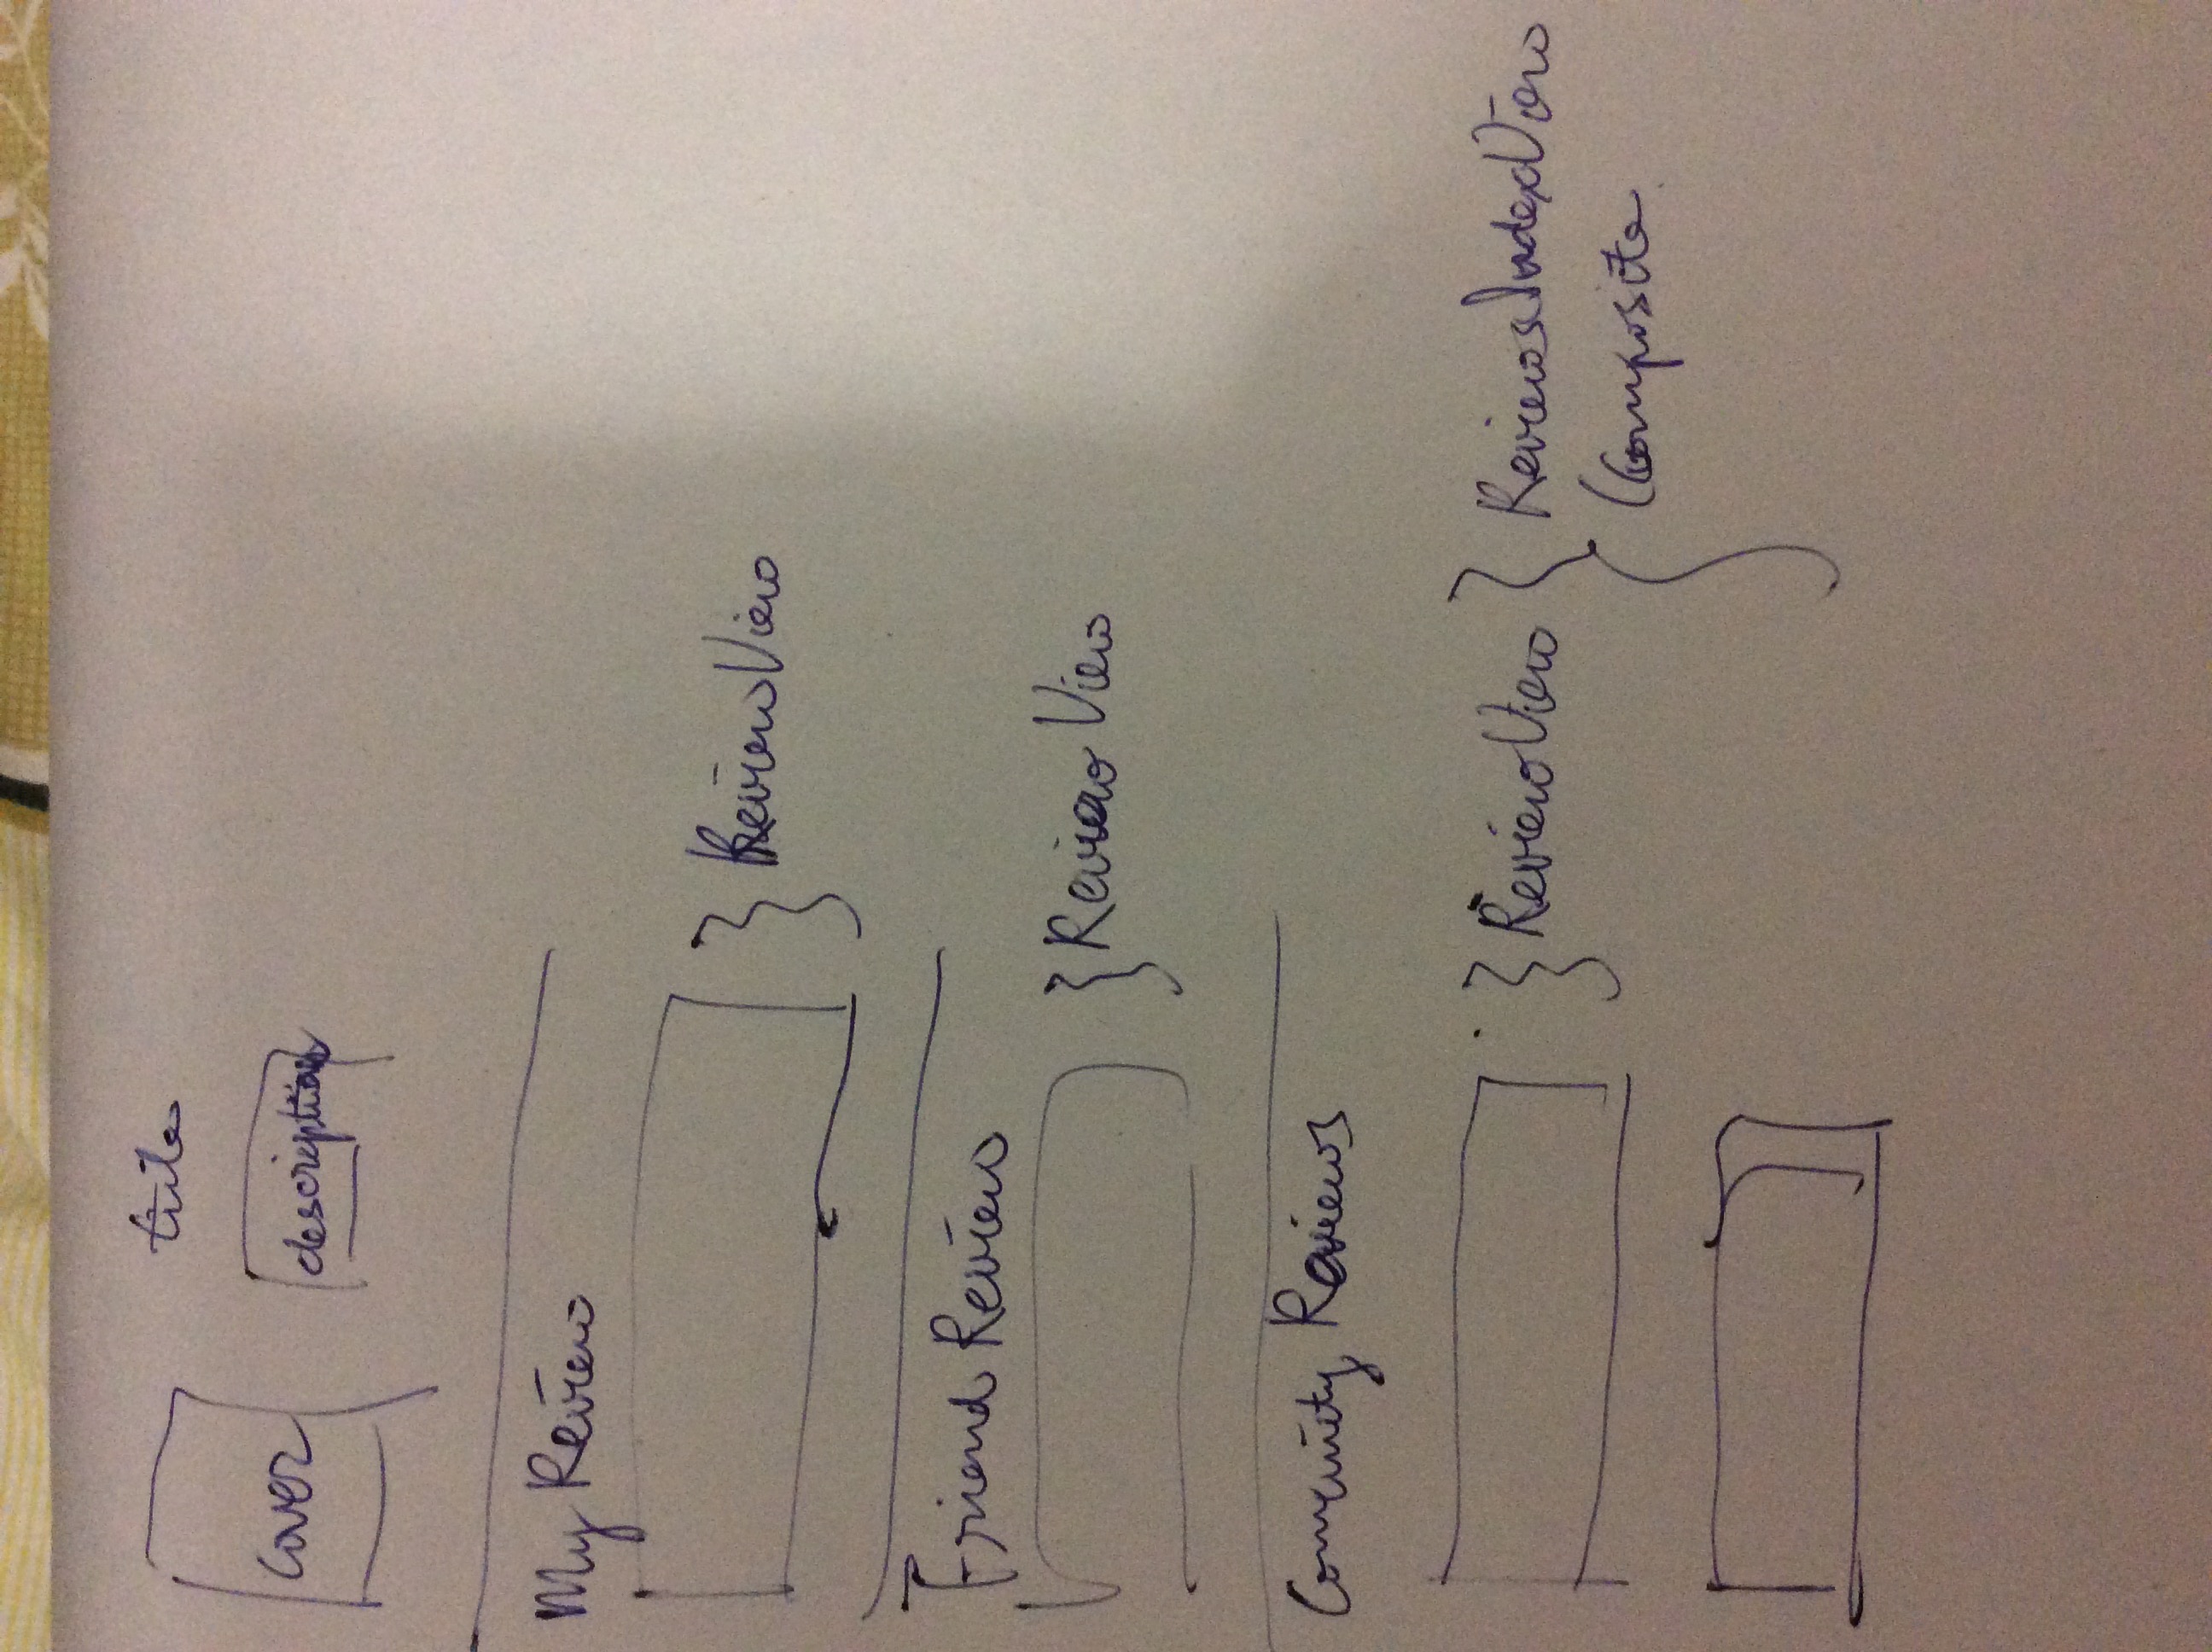 title
cover
description
My Review
ReviewView
Friend Review
Review View
Comunity Reviews
ReviewView
ReviewsIndexView
(Composite